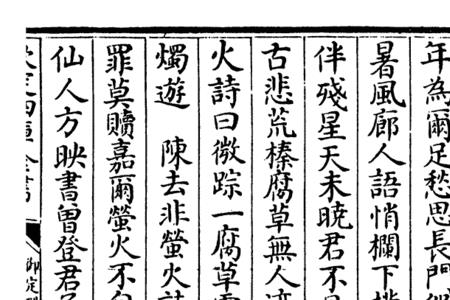 年為爾足愁思長門
暑風廊人語悄欄下
伴殘星天未曉君不
古悲荒榛腐草無人
火詩曰微踪一腐草
燭遊　陳去非螢火詩
罪莫贖嘉爾螢火不自
仙人方映書曽登君子
欽定四庫全書
御定